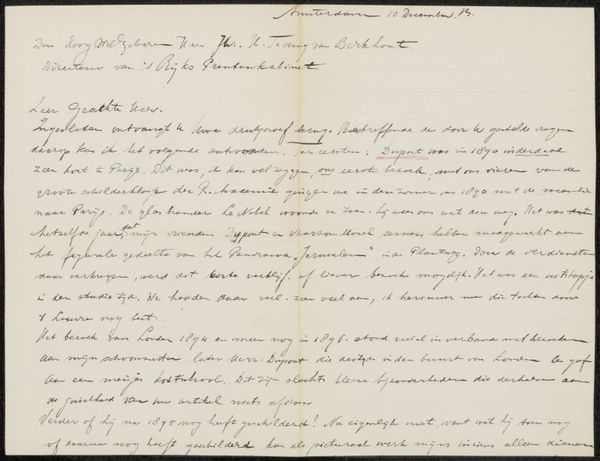 Amsterdam 10 December, 13.
Den Hoog WelGeboren Heer Jhr. H. Teding van Berckhout
Directeur van 's Rijks Prentenkabinet
Zeer Geachte Heer.
Ingesloten ontvangt U Uwe drukproef terug. Betreffende de door U gestelde vragen
daarop kan ik het volgende antwoorden. Ten eerste: Dupont was in 1890 inderdaad
zeer kort te Parijs. Dit was, ik kan wel zeggen, ons eerste bezoek, met ons vieren van de
groote schilderklasse der R. Academie gingen we in den zomer van 1890 met de vacantie
naar Parijs. De glasbrander Le Nobel woonde er toen. hij wees ons wat den weg. Het was
hetzelfde jaar, dat mijn vrienden Dupont en Veerman Morel samen hebben meegewerkt aan
het figurale gedeelte van het Panorama "Jerusalem" in de Plantage. Door de verdiensten
daar verkregen, werd dit korte verblijf of liever bezoek mogelijk. Het was een uitstapje
in den studietijd. We hadden daar veel zeer veel aan, ik herinner me die tochten door
't Louvre nog best.
Het bezoek aan Londen 1894 en meer nog in 1896 stond veelal in verband met bezoeken
aan mijn schoonmoeder, later Mevr. Dupont die destijds in den buurt van Londen les gaf
aan een meisjes kostschool. Dit zijn slechts kleine bijzonderheden die derhalve aan
de juistheid van uw artikel niets afdoen.
Verder of hij na 1895 nog heeft geschilderd? Nu eigenlijk niet want wat hij toen nog
of daarna nog heeft geschilderd kan als picturaal werk mijns inziens alleen dienen